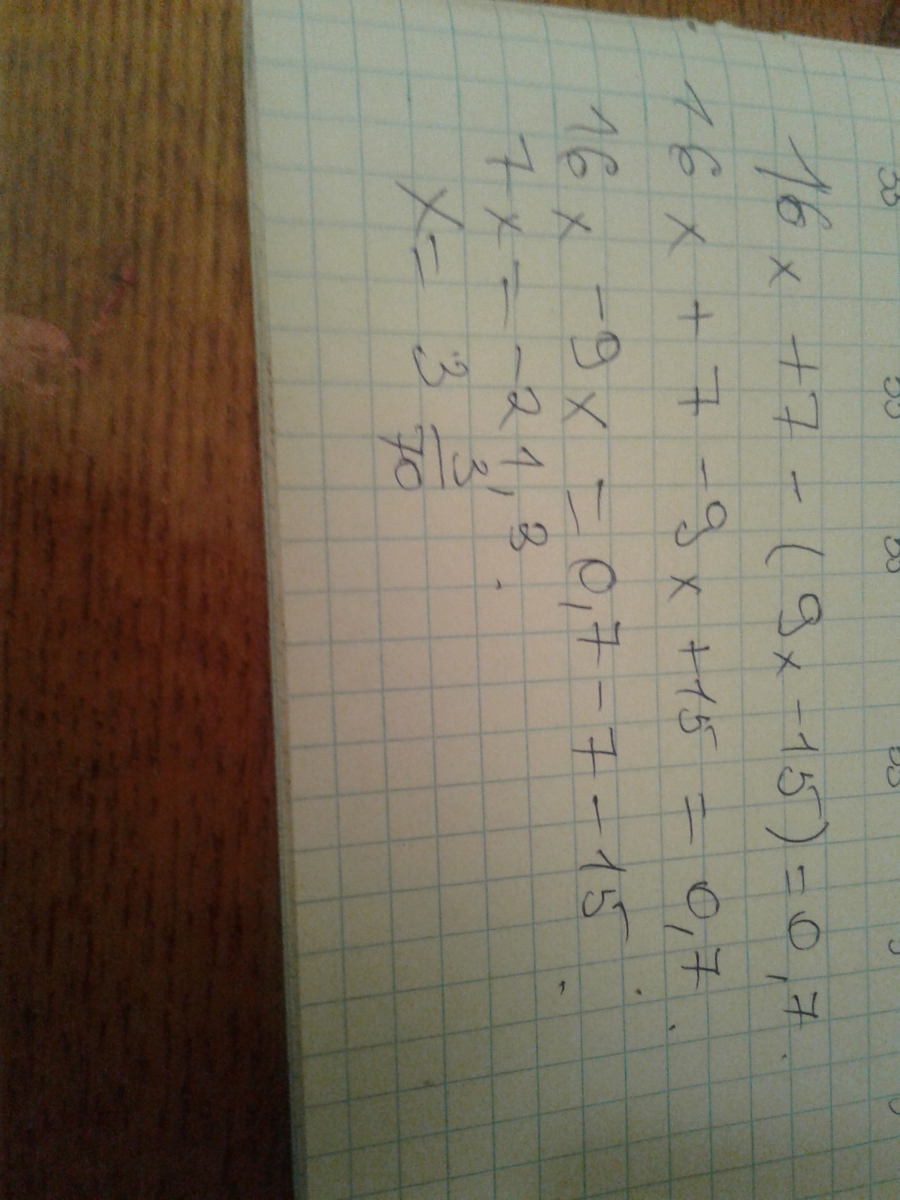 16x + 7 - (9x - 15) = 0,7.
16x + 7 - 9x + 15 = 0,7.
16x - 9x = 0,7 - 7 - 15.
7x = -21,3.
x = 3 3/70